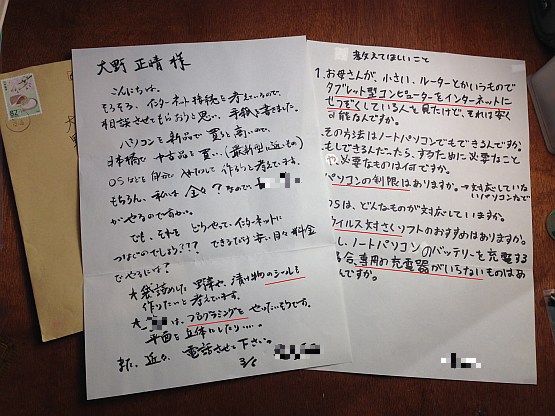 大野 正晴 様
こんにちは。
そろそろ、インターネット接続を考えているので、
相談させてもらおうと思い、手紙を書きました。
パソコンを新品で買うと高いので、
日本橋で 中古品を買い、(最新型に近いもの)
OSなどを自分で
もちろん、私は 全々?なので、
がやるのですが。
でも、それを どうやって、インターネットに
つなぐのでしょう??? できるだけ安い月々料金
でやるには?
大袋詰めした 野菜や、漬け物のシールも
作りたいと考えています。
は、プログラミングを やりたいそうです。
平面を立体にしたり・・・・。
また、近々、電話させて下さい。
3/8
教えてほしいこと
1. お母さんが、小さい、ルーターとかいうもので
タブレット型コンピューターをインターネットに
せつぞくしている人を見たけど、それは安く
可能なんですか。
その方法はノートパソコンでもできるんですか。
もしできるんだったら、するために必要なこと
や、必要なものは何ですか。
パソコンの制限はありますか。→対応していな
いパソコンなど
OSは、どんなものが対応していますか。
ウイルス対さくソフトのおすすめはありますか。
し、ノートパソコンのバッテリーを充電する
合、専用の充電器がいらないものはあ
んですか。
82